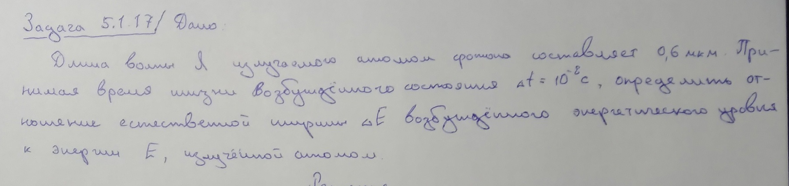 Задача 5.1.17/ Дано:
Длина волны λ излучаемого атомом фотона составляет 0,6 мкм. При-
нимая время жизни возбуждённого состояния Δt = 10⁻⁸с, определить от-
ношение естественной ширины ΔE возбуждённого энергетического уровня
к энергии E, излучённой атомом.